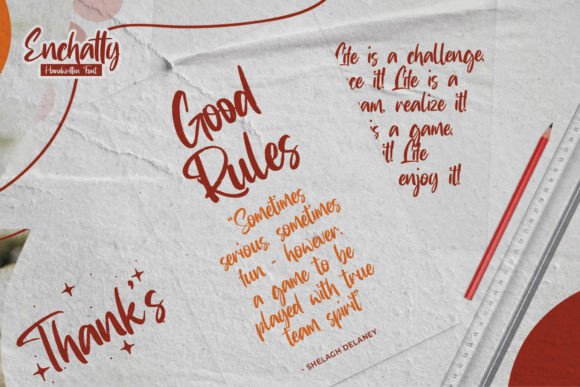 Enchatty
Handwritten Font
Good
Rules
Life is a challenge,
it! Life is a
realize it!
is a game,
it! Life
enjoy it!
"Sometimes
serious, sometimes
fun - however,
a game to be
played with true
team spirit"
- SHELAGH DELANEY
Thank's